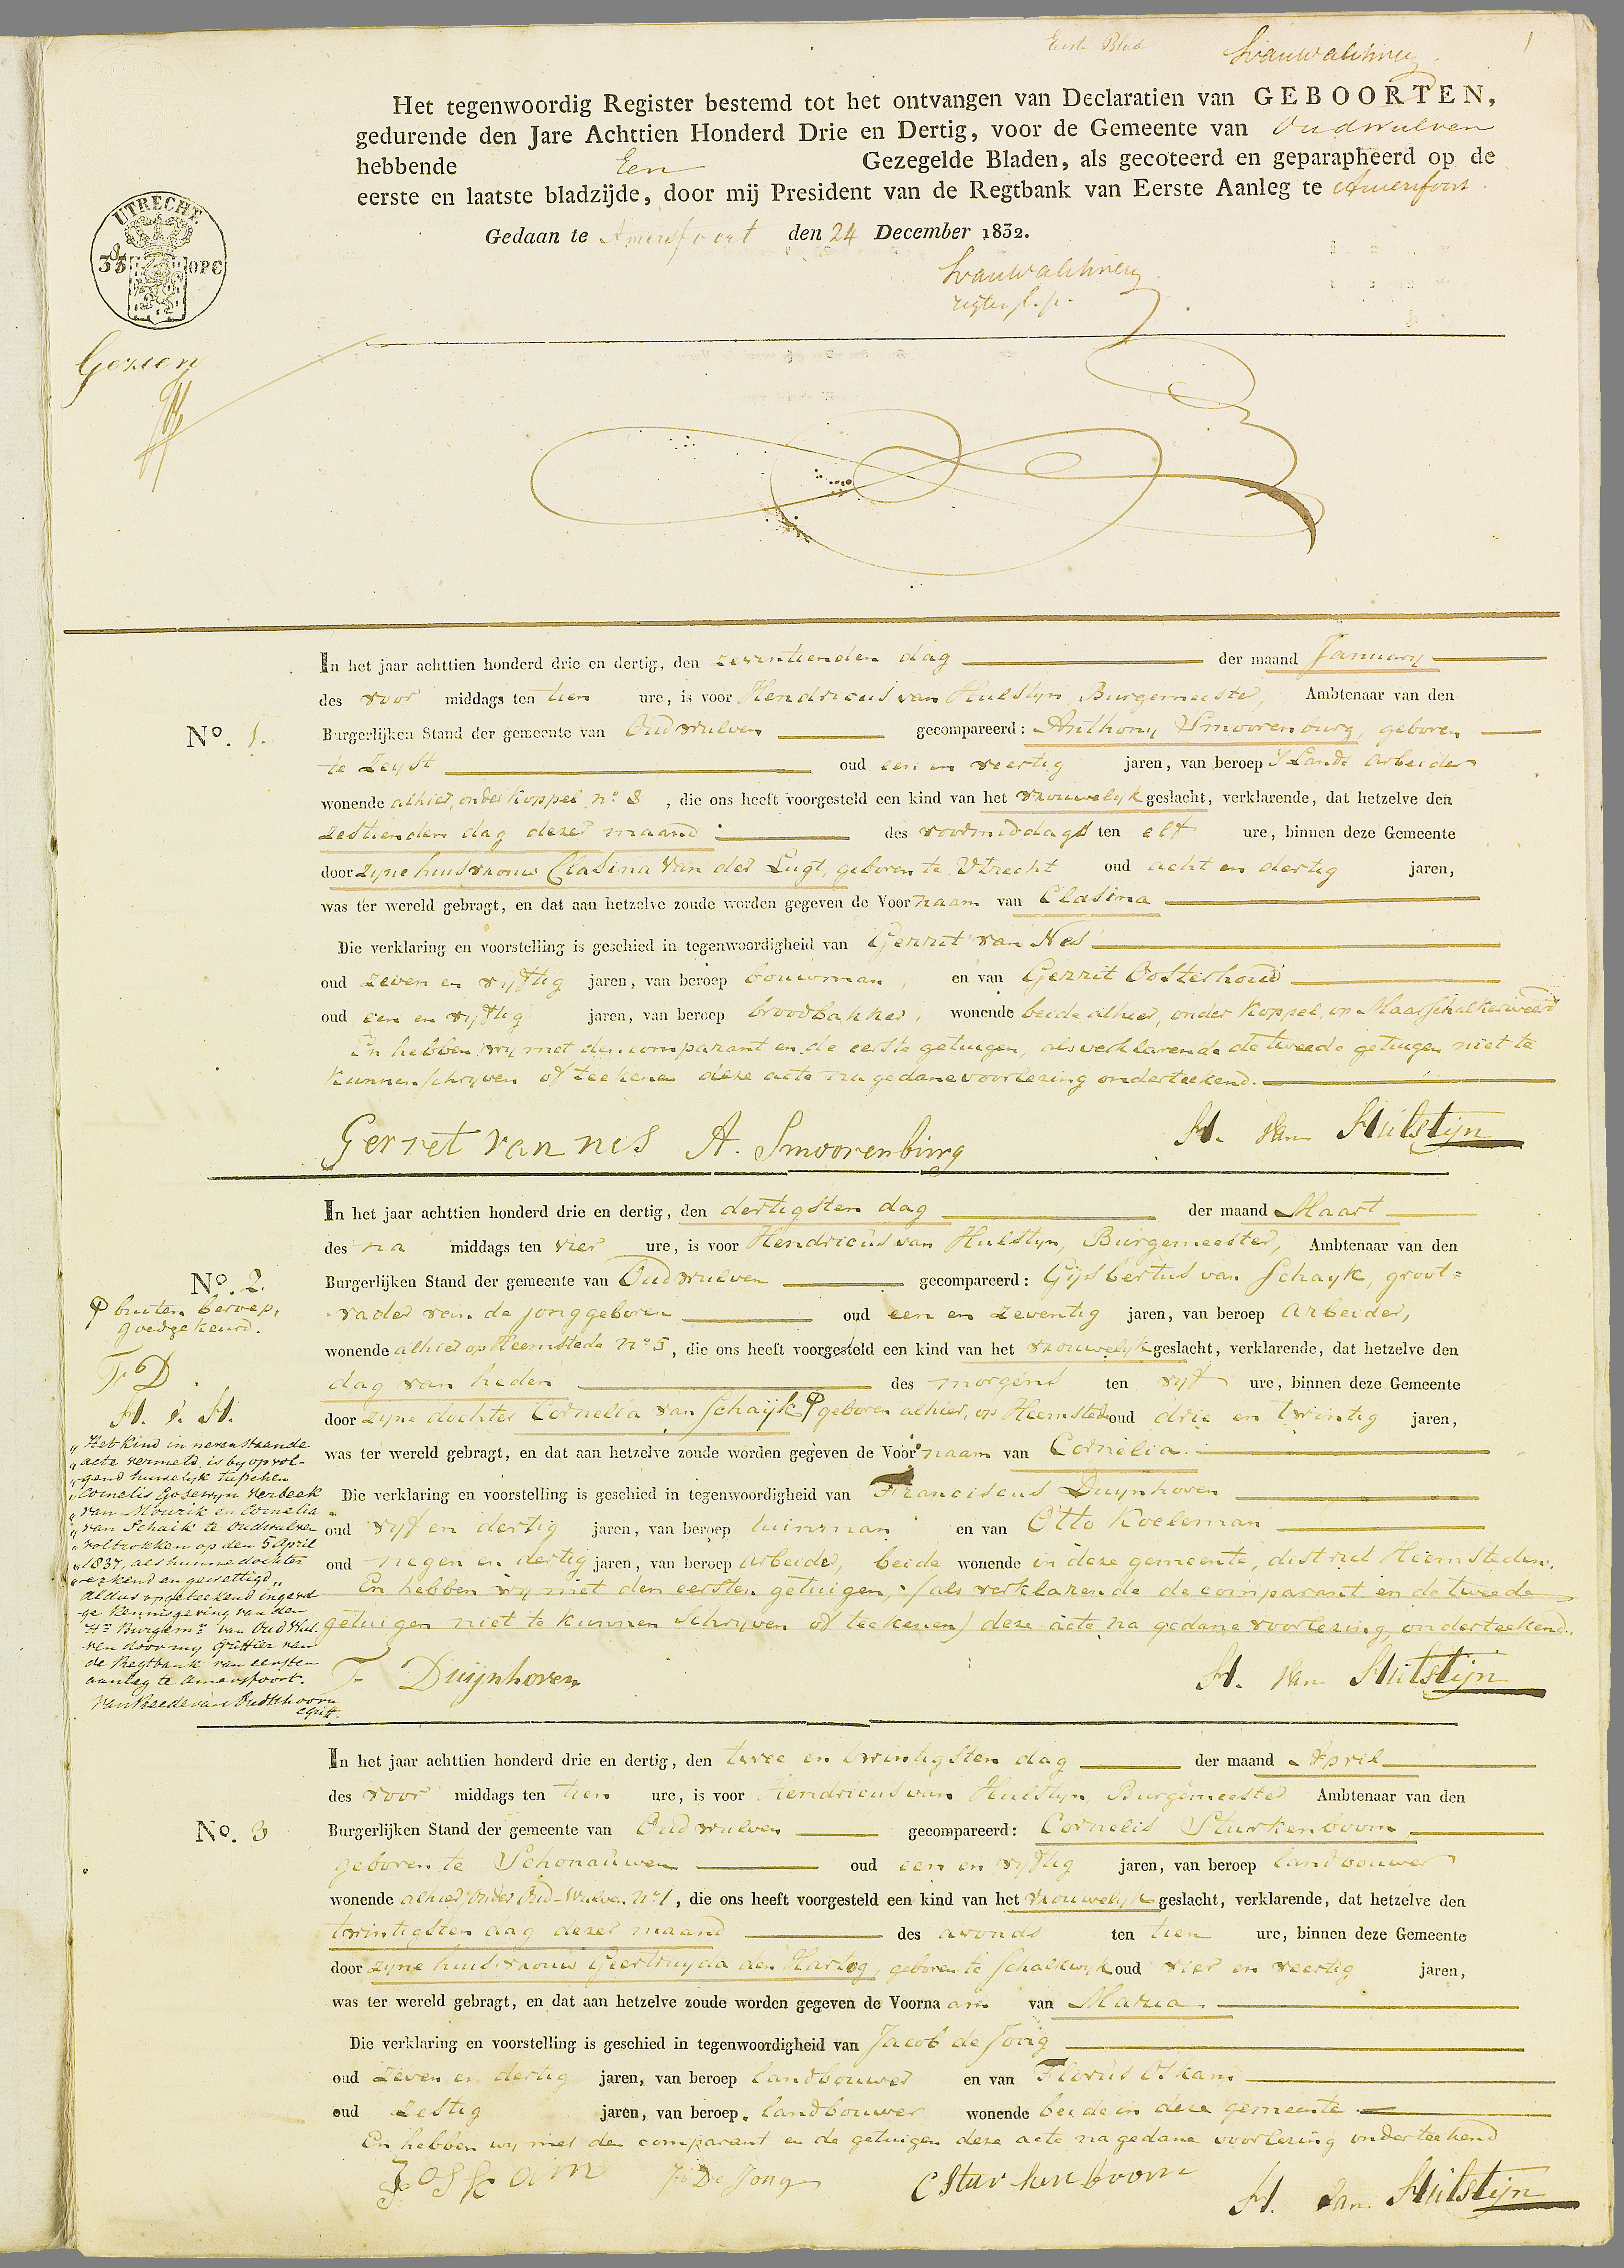 Eerste Blad
1
Het tegenwoordig Register bestemd tot het ontvangen van Declaratien van GEBOORTEN,
gedurende den Jare Achttien Honderd Drie en Dertig, voor de Gemeente van Oudwulven
hebbende Een Gezegelde Bladen, als gecoteerd en geparapheerd op de
eerste en laatste bladzijde, door mij President van de Regtbank van Eerste Aanleg te Amersfoort.
Gedaan te Amersfoort den 24 December 1832.
UTRECHT
OPC
Gezien
In het jaar achttien honderd drie en dertig, den zeventienden dag der maand January
des voor middags ten tien ure, is voor Hendricus van Hulstyn, Burgemeester, Ambtenaar van den
No. 1. Burgerlijken Stand der gemeente van Oudwulven gecompareerd: Anthony Smoorenburg, geboren
te Zeyst oud een en veertig jaren, van beroep 's Lands arbeider
wonende alhier, onder Koppel, no 8, die ons heeft voorgesteld een kind van het vrouwelyk geslacht, verklarende, dat hetzelve den
zestienden dag dezer maand des voormiddags ten elf ure, binnen deze Gemeente
door zyne huisvrouw Clasina van der Lugt, geboren te Utrecht oud acht en dertig jaren,
was ter wereld gebragt, en dat aan hetzelve zoude worden gegeven de Voornaam van Clasina
Die verklaring en voorstelling is geschied in tegenwoordigheid van Gerrit van Nes
oud zeven en vyftig jaren, van beroep bouwman, en van Gerrit Oosterhoud
oud een en vyftig jaren, van beroep broodbakker, wonende beide alhier, onder Koppel, op Maarschalkerweerd
En hebben wy met den comparant en de eerste getuigen, als verklarende de tweede getuigen niet te
kunnen schryven of teekenen deze acte na gedane voorlezing onderteekend.
Gerret van nes A. Smoorenburg H. van Hulstijn
In het jaar achttien honderd drie en dertig, den dertigsten dag der maand Maart
des na middags ten vier ure, is voor Hendricus van Hulstyn, Burgemeester, Ambtenaar van den
No. 2. Burgerlijken Stand der gemeente van Oudwulven gecompareerd: Gysbertus van Schayk, groot=
vader van de jonggeboren oud een en zeventig jaren, van beroep arbeider,
wonende alhier op Heemstede no 5, die ons heeft voorgesteld een kind van het vrouwelyk geslacht, verklarende, dat hetzelve den
dag van heden des morgens ten vyf ure, binnen deze Gemeente
door zyne dochter Cornelia van Schayk geboren alhier, op Heemstede oud drie en twintig jaren,
was ter wereld gebragt, en dat aan hetzelve zoude worden gegeven de Voornaam van Cornelia.
Die verklaring en voorstelling is geschied in tegenwoordigheid van Franciscus Duynhoven
oud vyf en dertig jaren, van beroep tuinman en van Otto Koeleman
oud negen en dertig jaren, van beroep arbeider, beide wonende in deze gemeente, district Heemsteden.
En hebben wy met den eersten getuigen, (als verklarende de comparant en de tweede
getuigen niet te kunnen schryven of teekenen) deze acte na gedane voorlezing, onderteekend.
F Duijnhoven H. van Hulstijn
buiten beroep,
goedgekeurd.
F D
H. v. H.
„Het kind in nevenstaande
„acte vermeld, is by opvol-
„gend huwelyk tusschen
„Cornelis Gosewyn Verbeek
„van Mourik en Cornelia
„van Schaik te Oudwulven
„voltrokken op den 5 April
„1837, als hunne dochter
„erkend en gewettigd„
Aldus opgeteekend ingevol-
ge kennisgeving van den
Hr Burgemr van Oud Wul-
ven door my Griffier van
de Regtbank van eersten
aanleg te Amersfoort.
Van Reede van Oudtshoorn
Griff.
In het jaar achttien honderd drie en dertig, den twee en twintigsten dag der maand April
des voor middags ten tien ure, is voor Hendricus van Hulstyn Burgemeester Ambtenaar van den
No. 3 Burgerlijken Stand der gemeente van Oudwulven gecompareerd: Cornelis Sturkenboom,
geboren te Schonauwen oud een en vyftig jaren, van beroep landbouwer
wonende alhier, onder Oud-Wulven no 1, die ons heeft voorgesteld een kind van het vrouwelyk geslacht, verklarende, dat hetzelve den
twintigsten dag dezer maand des avonds ten tien ure, binnen deze Gemeente
door zyne huisvrouw Geertruyda den Hartog, geboren te Schalkwyk oud vier en veertig jaren,
was ter wereld gebragt, en dat aan hetzelve zoude worden gegeven de Voornaam van Maria.
Die verklaring en voorstelling is geschied in tegenwoordigheid van Jacob de Jong
oud zeven en dertig jaren, van beroep landbouwer en van Florus Oskam
oud zestig jaren, van beroep landbouwer wonende beide in deze gemeente.
En hebben wy met den comparant en de getuigen deze acte na gedane voorlezing onderteekend
F osskam J De Jong C Sturkenboom H. van Hulstijn